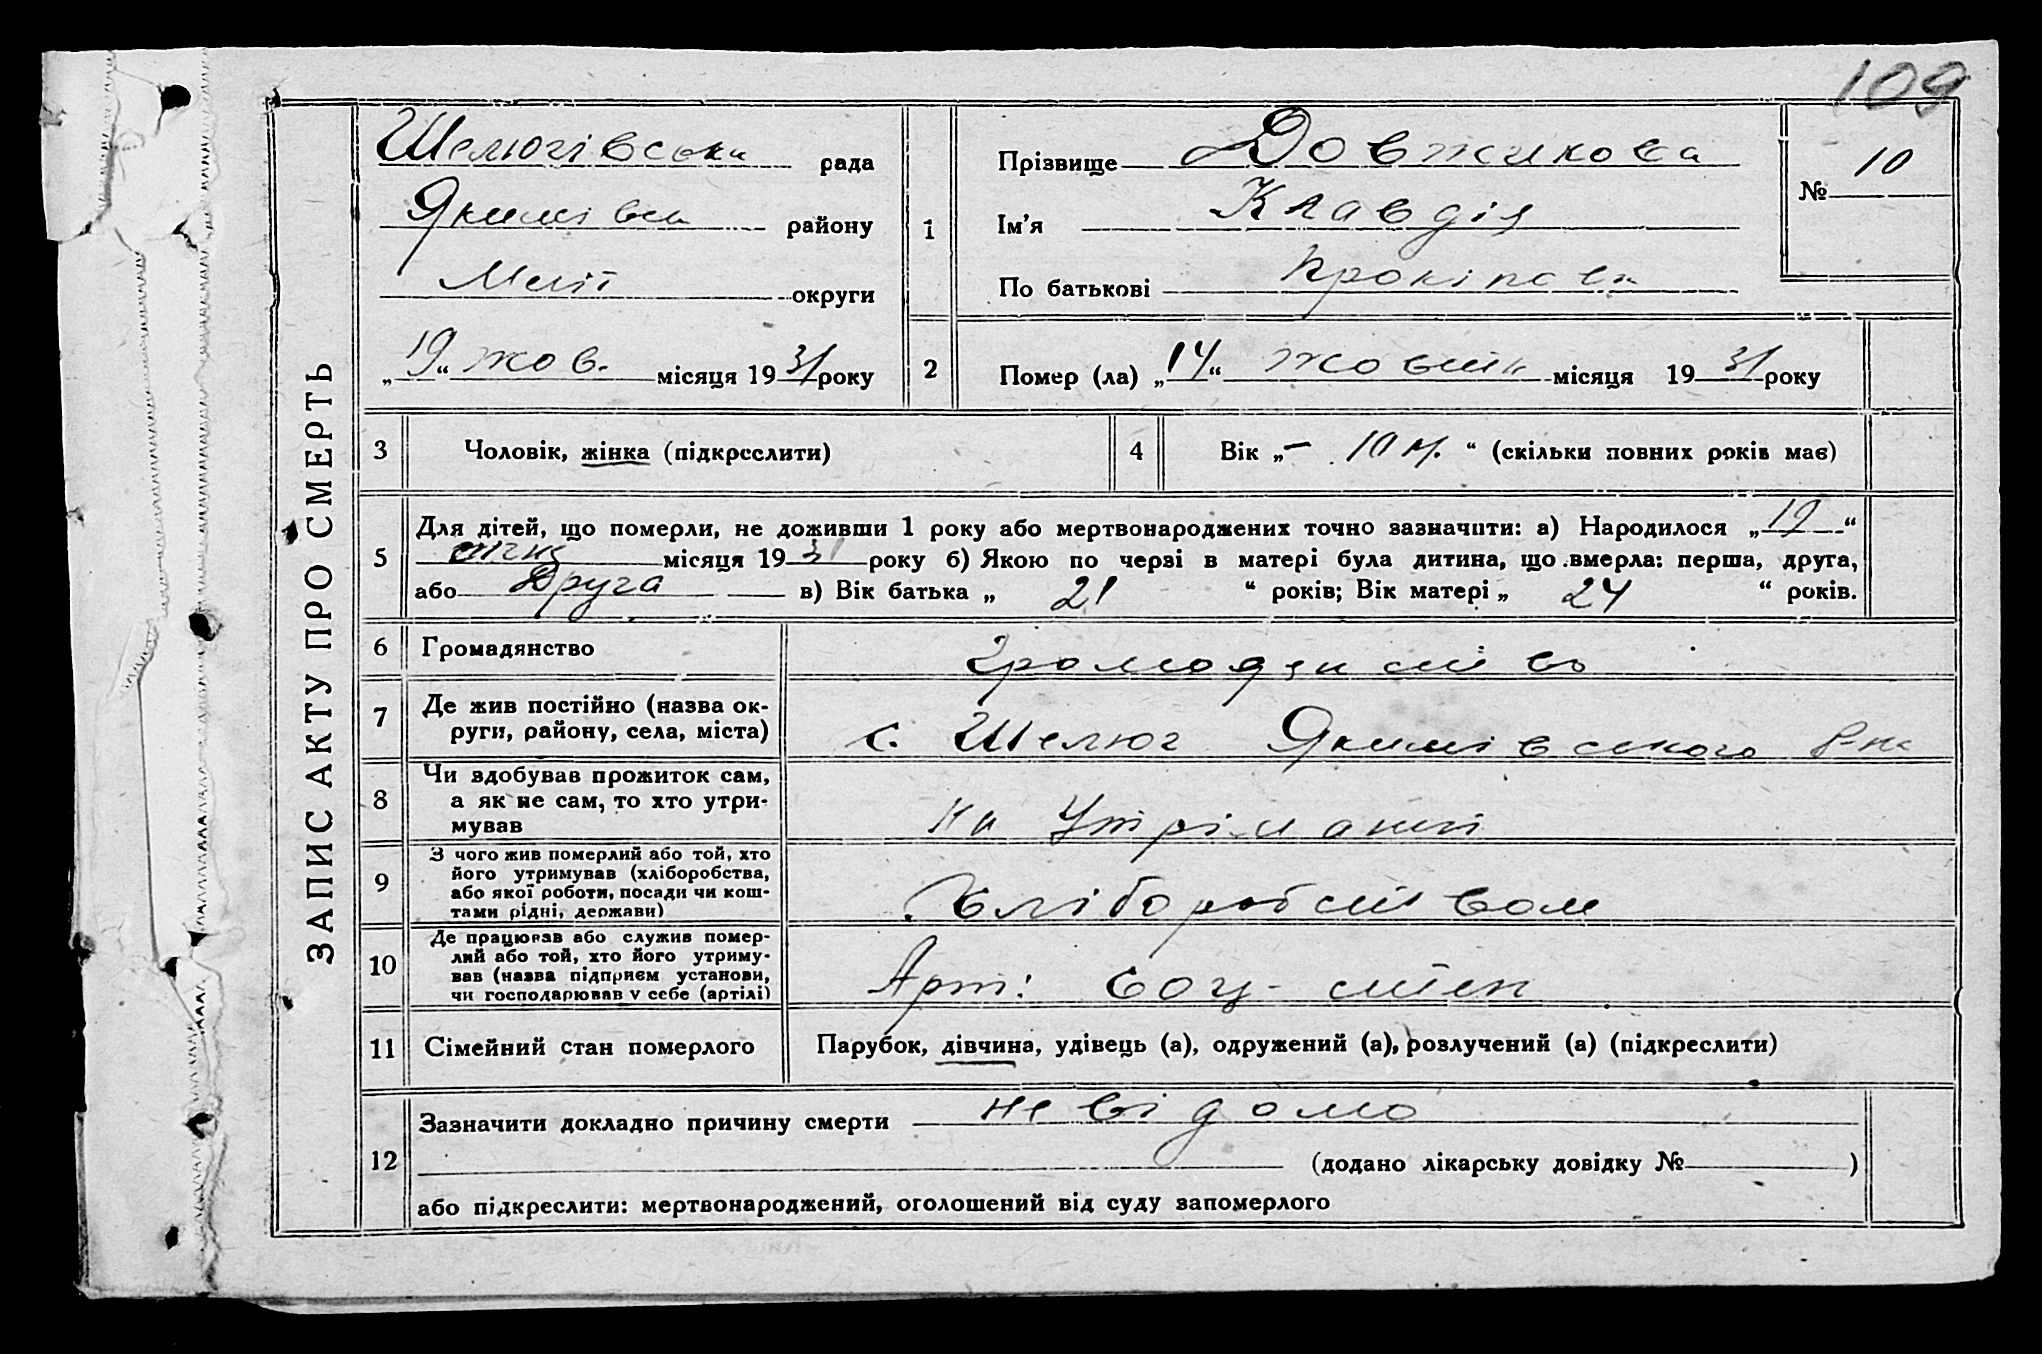 109
ЗАПИС АКТУ ПРО СМЕРТЬ
Шелюгівська рада
Якимівсь району
Меліт округи
„19“ жов. місяця 1931 року
1
Прізвище Довжикова
Ім’я Клавдія
По батькові Прокіповн
№ 10
2
Помер (ла) „14“ жовтн місяця 1931 року
3 Чоловік, жінка (підкреслити)
4 Вік „– 10 м. “ (скільки повних років має)
5 Для дітей, що померли, не доживши 1 року або мертвонароджених точно зазначити: а) Народилося „19“
січня місяця 1931 року б) Якою по черзі в матері була дитина, що вмерла: перша, друга,
або Друга в) Вік батька „ 21 “ років; Вік матері „ 24 “ років.
6 Громадянство громадянство
7 Де жив постійно (назва ок-
руги, району, села, міста) с. Шелюг Якимівського р-на
8 Чи здобував прожиток сам,
а як не сам, то хто утри-
мував на Утріманні
9 З чого жив померлий або той, хто
його утримував (хліборобства,
або якої роботи, посади чи кош-
тами рідні, держави) Хліборобством
10 Де працював або служив помер-
лий або той, хто його утриму-
вав (назва підприєм установи,
чи господарював у себе (артілі) Арт: Соц- степ
11 Сімейний стан померлого Парубок, дівчина, удівець (а), одружений (а), розлучений (а) (підкреслити)
12 Зазначити докладно причину смерти невідомо
(додано лікарську довідку № )
або підкреслити: мертвонароджений, оголошений від суду запомерлого